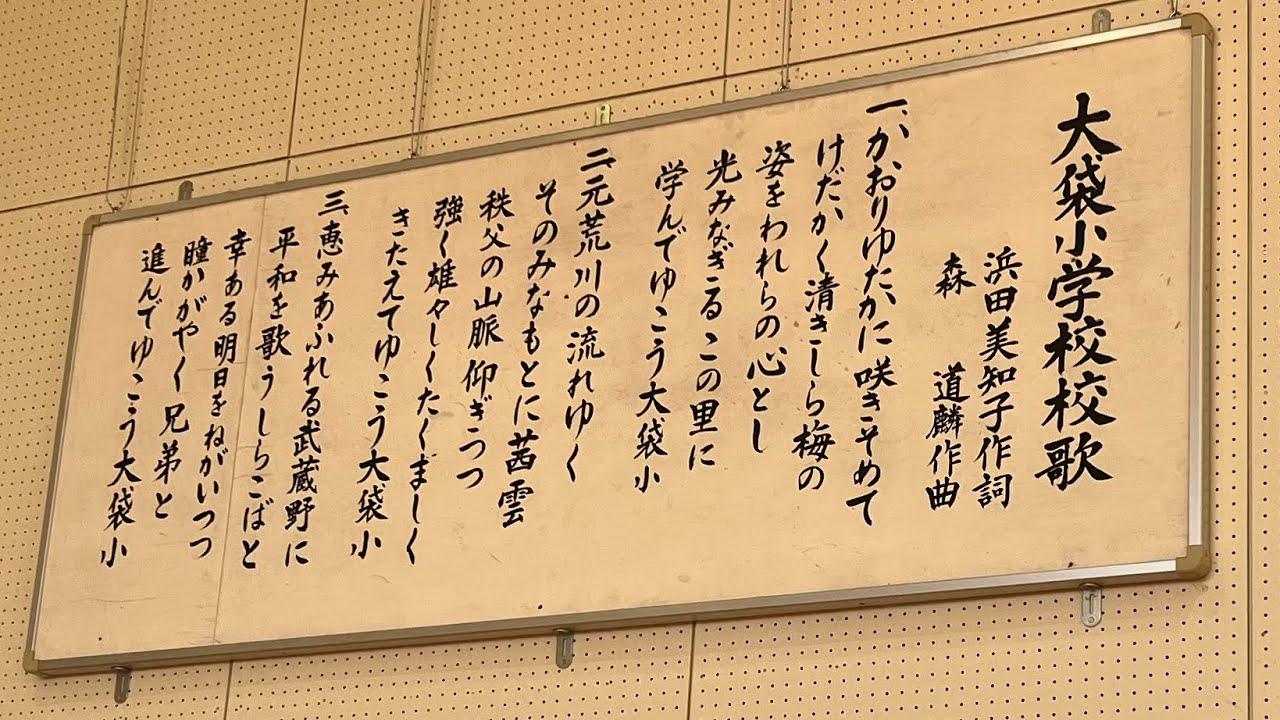 大袋小学校校歌
浜田美知子作詞
森 道麟作曲
一、かおりゆたかに咲きそめて
けだかく清きしら梅の
姿をわれらの心とし
光みなぎるこの里に
学んでゆこう大袋小
二、元荒川の流れゆく
そのみなもとに茜雲
秩父の山脈仰ぎつつ
強く雄々しくたくましく
きたえてゆこう大袋小
三、恵みあふれる武蔵野に
平和を歌うしらこばと
幸ある明日をねがいつつ
瞳かがやく兄弟と
進んでゆこう大袋小